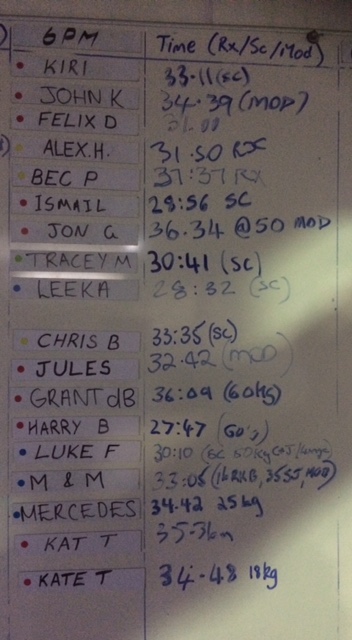 6PM Time (Rx/Sc/Mod)
KIRI 33.11 (SC)
JOHN K 34.39 (MOD)
FELIX D
ALEX.H. 31.50 RX
BEC P 37:37 RX
ISMAIL 28:56 SC
JON G 36.34 @50 MOD
TRACEY M 30:41 (SC)
LEEKA 28:32 (SC)
CHRIS B 33:35 (SC)
JULES 32.42 (MOD)
GRANT dB 36:09 (60kg)
HARRY B 27:47
LUKE F 30:10 (SC 50kg
M & M 33:05
MERCEDES 34.42 25kg
KAT T
KATE T 34.48 18kg